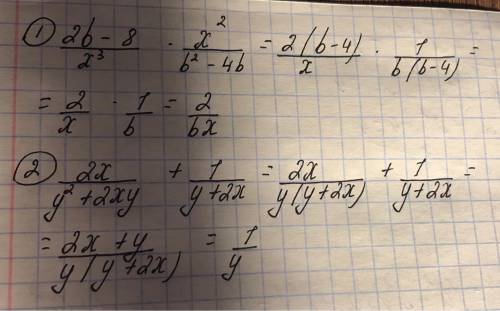 ① (2b - 8)/x³ · x²/(b² - 4b) = 2(b-4)/x · 1/(b(b-4)) =
= 2/x · 1/b = 2/(bx)
② 2x/(y² + 2xy) + 1/(y + 2x) = 2x/(y(y+2x)) + 1/(y+2x) =
= (2x + y)/(y(y+2x)) = 1/y